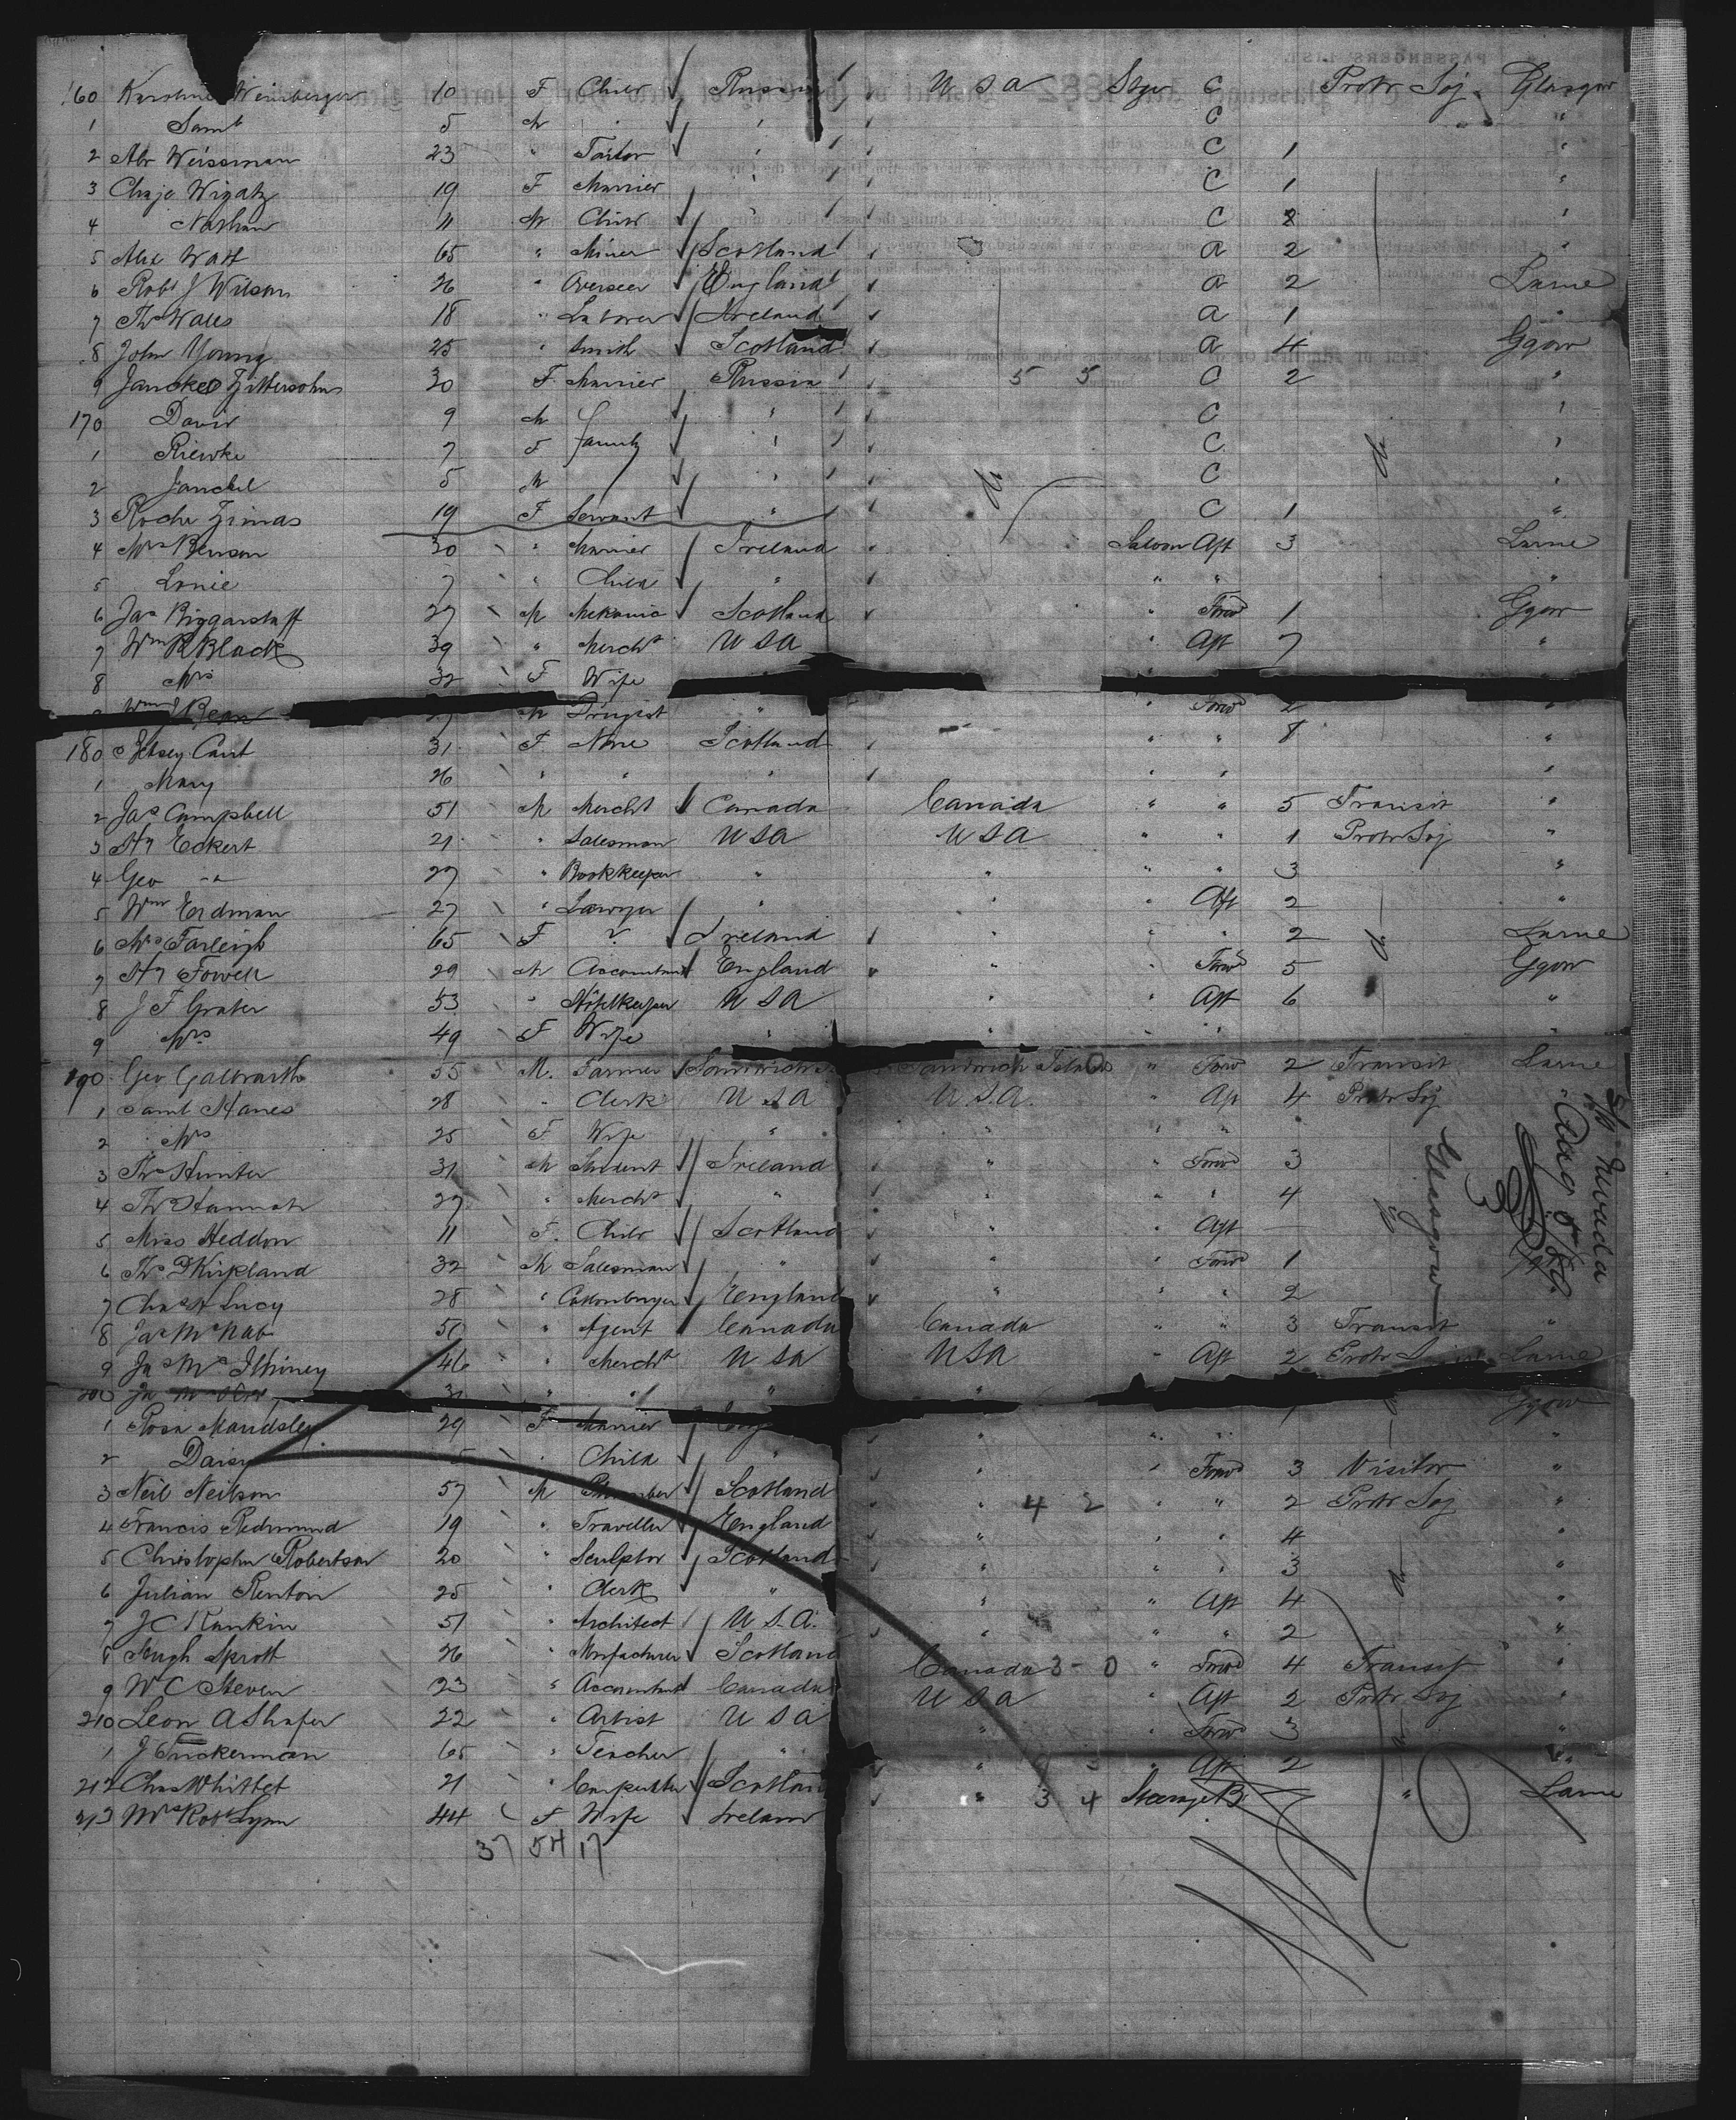 160 Karoline Weinberger 10 F Child Russia U S A Stge C Protr Soj Glasgow
1 Saml 5 M " " C "
2 Abr Weissman 23 " Tailor " C 1 "
3 Chaje Wigatz 19 F Married " C 1 "
4 Nathan 11 M Child " C "
5 Alex Watt 65 " Miner Scotland A 2 "
6 Robt J Wilson 26 " Overseer England A 2 Larne
7 Ths Walls 18 " Laborer Ireland A 1 "
8 John Young 25 " Smith Scotland A 4 Ggow
9 Janckel Zittersohn 30 F Married Russia 5 5 C 2 "
170 David 9 M family " C "
1 Riewke 7 F " C "
2 Janckel 5 M " C "
3 Roche Zimas 19 F Servant " C 1 "
4 Mrs Benson 30 " Married Ireland Saloon Aft 3 Larne
5 7 " Child " " " "
6 Jas Biggarstaff 27 M Mekanic Scotland " Forwd 1 Ggow
7 Wm R Black 39 " Mercht U S A " Aft 7 "
8 Mrs 32 F Wife
Wm J Bean 27 M Drugist " " Forwd 2 "
180 Betsey Cant 31 F None Scotland " " "
1 Mary 26 " " " " " "
2 Jas Campbell 51 M Mercht Canada Canada " " 5 Transit "
3 Hy Eckert 21 " Salesman U S A U S A " " 1 Protr Soj "
4 Geo " 27 " Bookkeeper " " " " 3 "
5 Wm Erdman 27 " Lawyer " " " Aft 2 "
6 Mrs Farleigh 65 F ? Ireland " " " 2 Larne
7 Hy Fowell 29 M Accountant England " " Forwd 5 Ggow
8 J F Grater 53 " Hotelkeeper U S A " " Aft 6 "
9 Mrs 49 F Wife " " " " "
190 Geo Galbraith 55 M. Farmer Sandwich Is Sandwich Islands " Forwd 2 Transit Larne
1 Saml Hanes 28 " Clerk U S A U.S.A. " Aft 4 Protr Soj "
2 Mrs 25 F Wife " " " "
3 Ths Hunter 31 M Student Ireland " " Forwd 3
4 Ths Hannah 27 " Mercht " " " " 4
5 Miss Heddon 11 F. Child Scotland " " Aft —
6 Ths D Kirkland 32 M Salesman " " " Forwd 1
7 Chas H Lucy 28 " Cattonbuyer England " " " 2
8 Jas McNab 50 " Agent Canada Canada " " 3 Transit "
9 Jas McIlhiney 46 " Mercht U S A U S A " Aft 2 Protr Soj Larne
200 Ja M " " " " Ggow
1 Rosa Maudsley 29 F Married Eng " " "
2 Daisy 5 " Child " " " Forwd 3 Visitor "
3 Neil Neilson 57 M Plumber Scotland " 4 2 " " 2 Protr Soj "
4 Francis Redmund 19 " Traveller England " " " 4 "
5 Christopher Robertson 20 " Sculptor Scotland " " " 3 "
6 Julian Renton 25 " Clerk " " " Aft 4 "
7 J C Rankin 51 " Architect U.S.A. " " " 2 "
8 Hugh Sprott 26 " Manfacturer Scotland Canada 3 - 0 " Forwd 4 Transit "
9 W C Steven 23 " Accountant Canada U S A " Aft 2 Protr Soj "
210 Leon A Shafer 22 " Artist U S A " " Forwd 3 "
1 J Tuckerman 65 " Teacher " " " Aft 2 "
212 Chas Whittet 21 " Carpenter Scotland " 3 4 Steerage B " Larne
213 Mrs Robt Lynn 44 F Wife Ireland
37 54 17
S/S Nevada
Aug 5/82
Glasgow